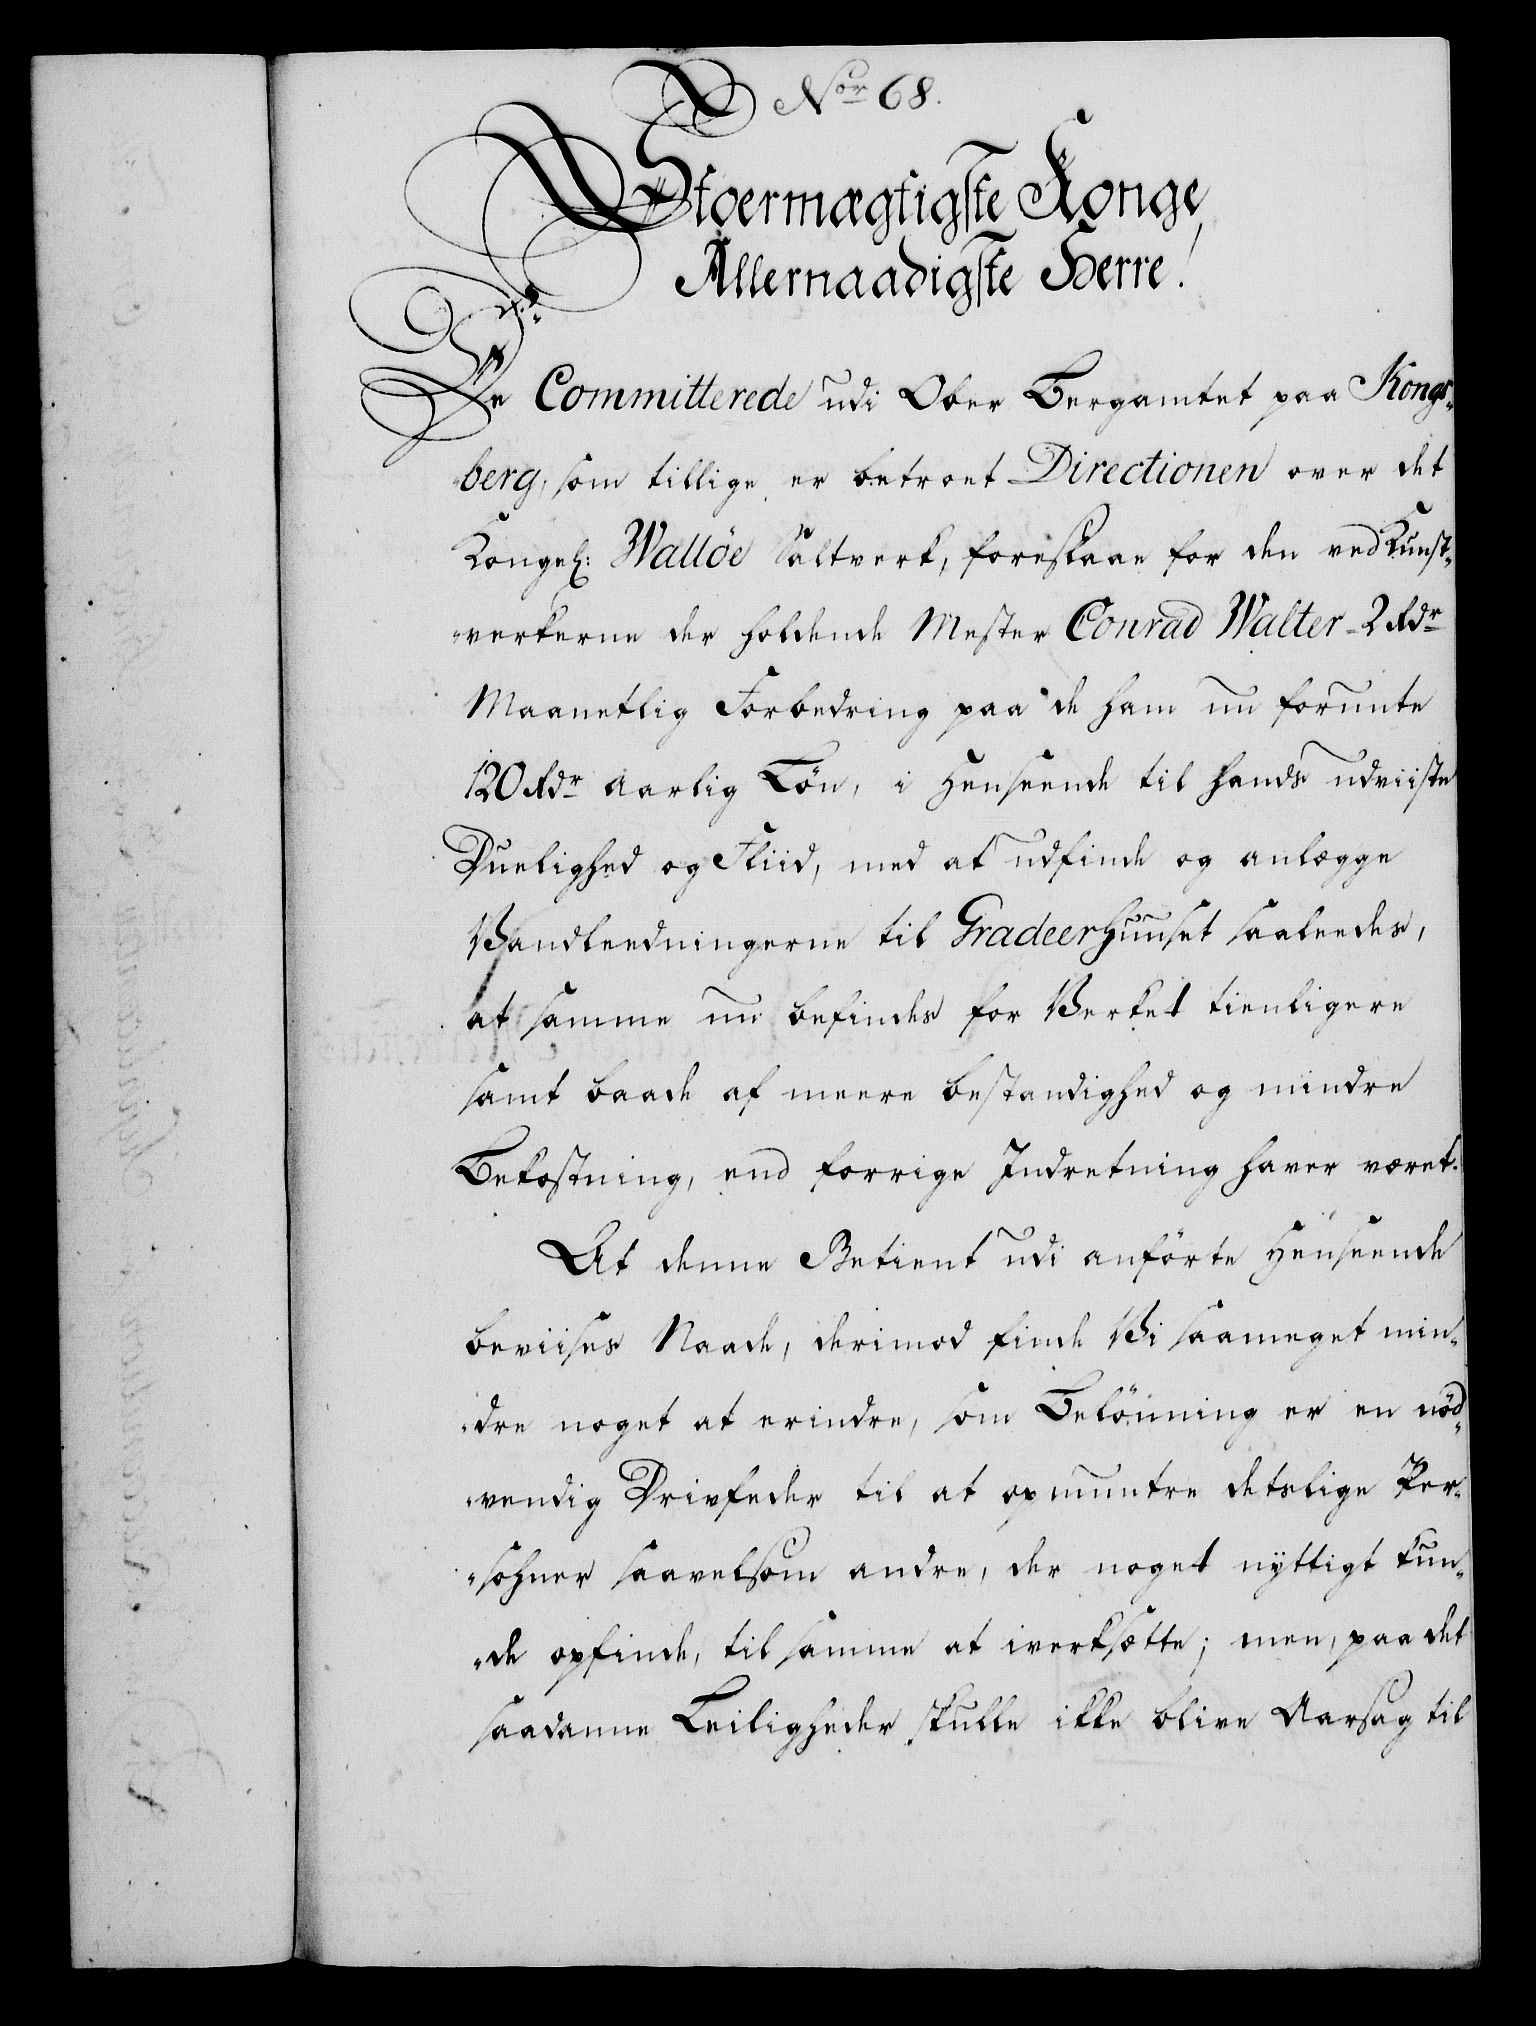 Nor 68.
Stoermægtigste Konge
Allernaadigste Herre!
De Committerede udi Ober Bergamtet paa Kongs-
berg, som tillige er betroet Directionen over det
Kongel: Walløe Saltverk, foreslaae for den ved Kunst-
verkerne der holdende Mester Conrad Walter 2 Rdr
Maanetlig Forbedring paa de ham nu forunte
120 Rdr aarlig Løn, i Henseende til hands udviiste
Duelighed og Fliid, med at udfinde og anlægge
Vandleedningerne til Gradeerhuuset saaleedes,
at samme nu befindes for Verket tienligere
samt baade af meere bestandighed og mindre
Bekostning, end forrige Indretning haver været.
At denne Betient udi anførte Henseende
beviises Naade, derimod finde Vi saameget min-
dre noget at erindre, som Belønning er en nød-
vendig Drivfeder til at opmuntre detslige Per-
sohner saavelsom andre, der noget nyttigt kun-
de opfinde, til samme at iverksætte; men, paa det
saadanne Leiligheder skulle ikke blive Aarsag til